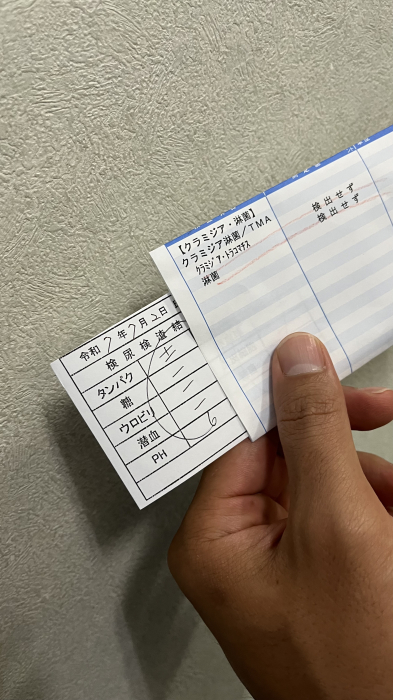 【クラミジア・淋菌】
クラミジア淋菌/TMA
クラミジア・トラコマチス 検出せず
淋菌 検出せず
令和7年7月2日
検尿検査結
タンパク ±
糖 -
ウロビリ -
潜血 -
PH 6